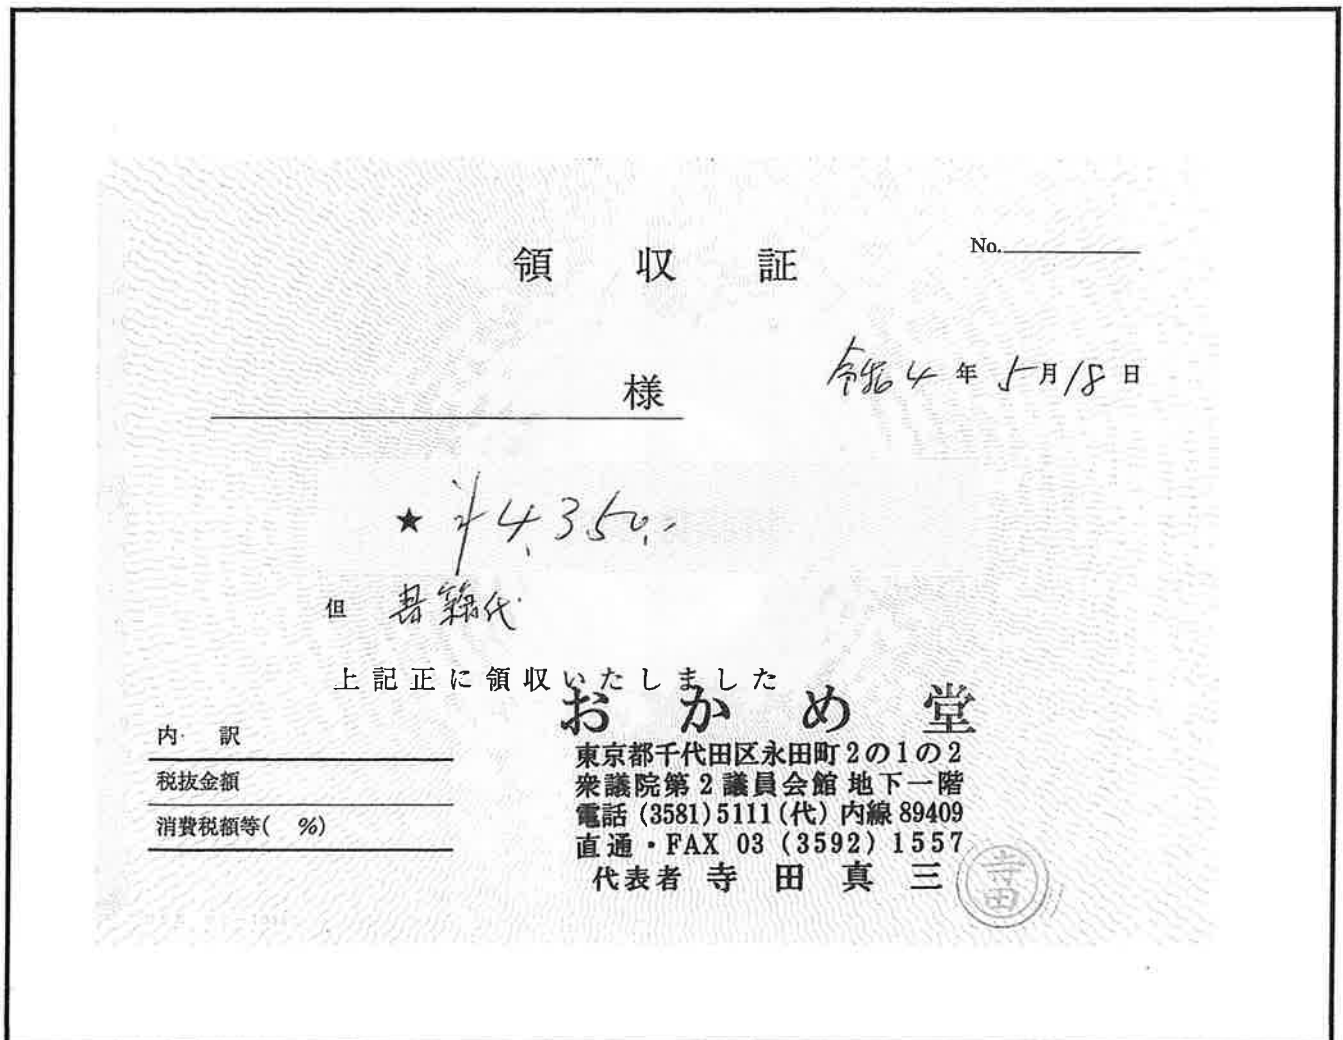 領収証
No.
令和4年5月18日
様
★ ¥4,350.-
但 書籍代
上記正に領収いたしました
おかめ堂
東京都千代田区永田町2の1の2
衆議院第2議員会館 地下一階
電話 (3581)5111(代) 内線 89409
直通・FAX 03 (3592) 1557
代表者 寺田真三
寺田
内 訳
税抜金額
消費税額等( %)